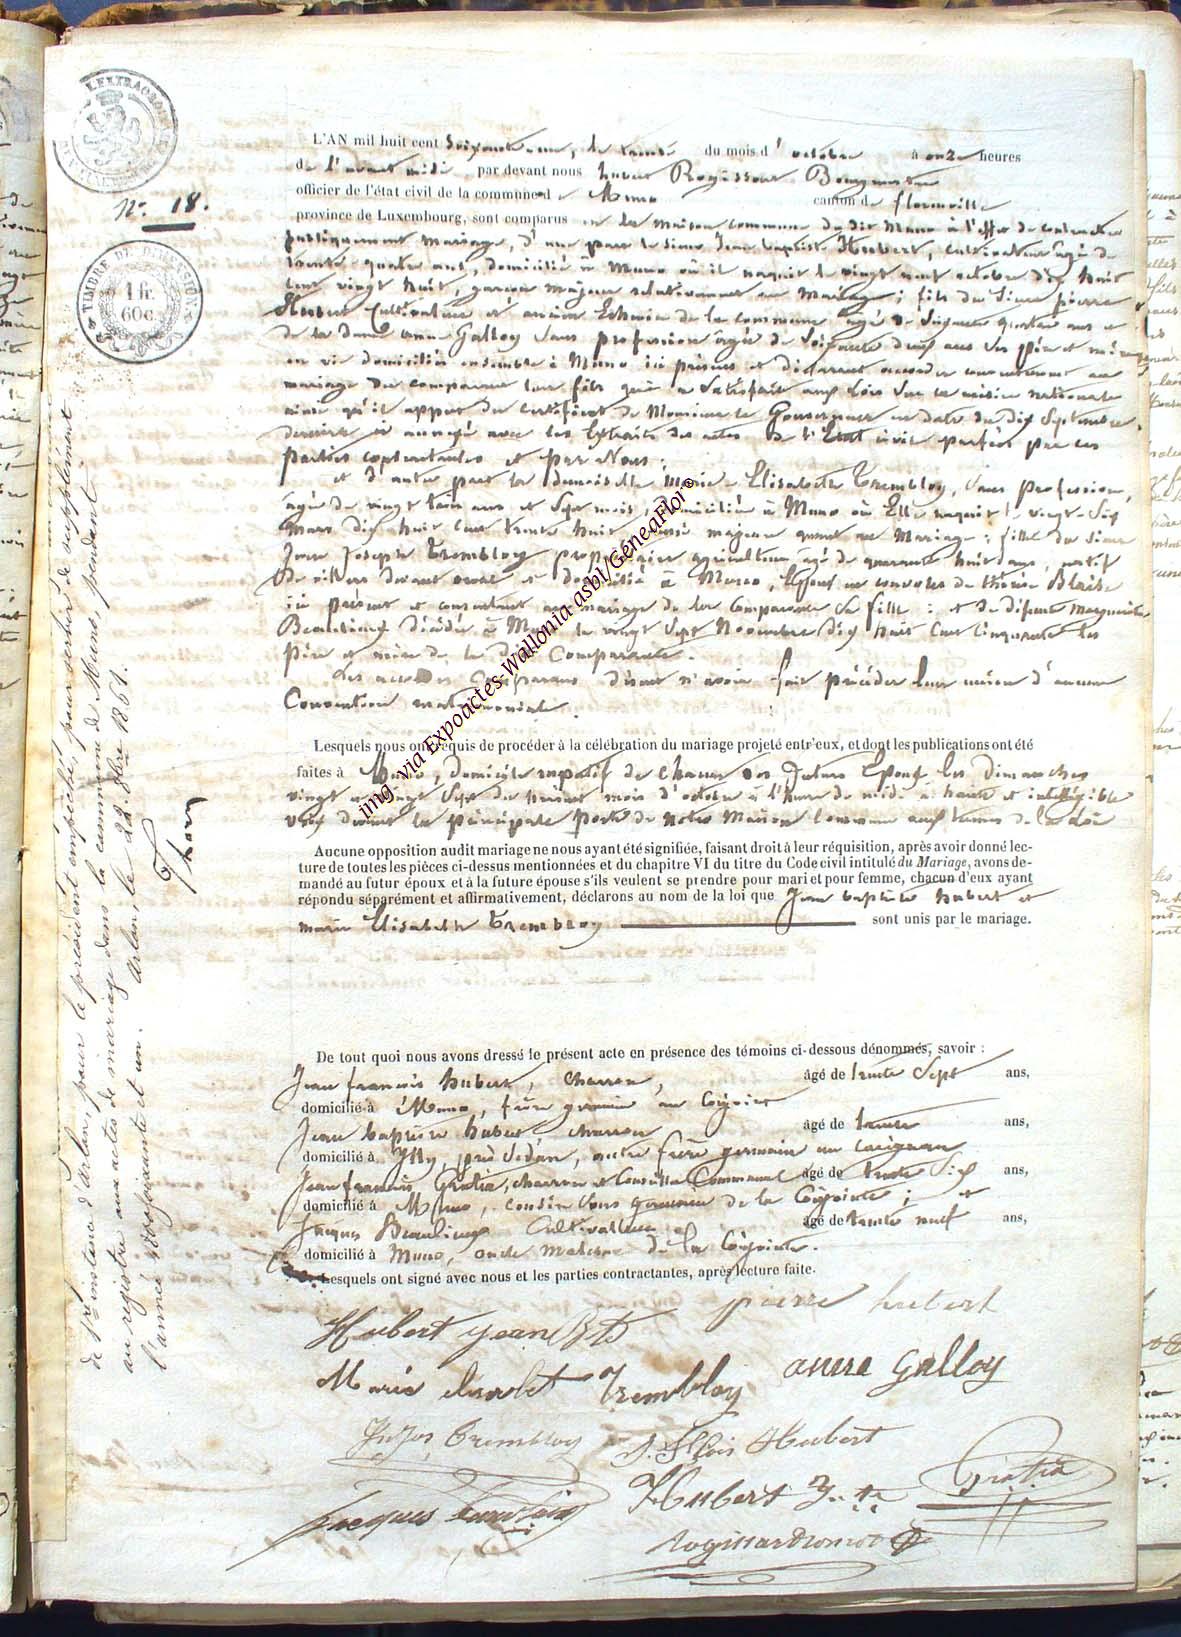 L'EXTRAORD
N.º 18.
TIMBRE DE DIMENSION
1 fr.
60 c.
L'AN mil huit cent soixante un, le trente du mois d'octobre à onze heures
de l'avant midi par devant nous hubert Rogissart Bourgmestre
officier de l'état civil de la commune de Muno canton de florenville
province de Luxembourg, sont comparus en la maison commune du dit Muno à l'effet de contracter
publiquement mariage, d'une part le sieur Jean baptiste Hubert, cultivateur âgé de
trente quatre ans, domicilié à Muno où il naquit le vingt neuf octobre dix huit
cent vingt huit, garçon majeur relativement au mariage ; fils du sieur pierre
Hubert Cultivateur et ancien Echevin de la commune âgé de soixante quatre ans et
de la dame anne Galloy sans profession âgée de soixante deux ans ses père et mère
en vie domiciliés ensemble à Muno ici présens et déclarant accorder consentement au
mariage du comparant leur fils qui a satisfait aux lois sur la milice nationale
ainsi qu'il appert du certificat de Monsieur le Gouverneur en date du dix Septembre
dernier et annexé avec les Extraits des actes de l'Etat civil par les
parties contractantes et par Nous ;
et d'autre part la demoiselle Marie Elisabeth Trembloy, sans profession,
âgée de vingt trois ans et sept mois, domiciliée à Muno où Elle naquit le vingt-six
Mars dix huit cent trente huit, majeure quant au Mariage ; fille du sieur
Jean Joseph Trembloy propriétaire agriculteur âgé de quarante huit ans, natif
de villers devant orval et domicilié à Muno, Epoux en convoles de thérèse Blaise
ici présent et consentant au mariage de la Comparante sa fille : et de défunte Marguerite
Beaulieux décédée à Muno le vingt sept Novembre dix huit cent cinquante les
père et mère de la dite Comparante.
Les Comparans disant n'avoir fait précéder leur union d'aucune
Convention matrimoniale.
Lesquels nous ont requis de procéder à la célébration du mariage projeté entr'eux, et dont les publications ont été
faites à Muno, domicile respectif de Chacun des futurs Epoux les Dimanches
vingt et vingt Sept du présent mois d'octobre à l'heure de midi à haute et intelligible
voix devant la principale porte de notre Maison Commune aux termes de la loi
Aucune opposition audit mariage ne nous ayant été signifiée, faisant droit à leur réquisition, après avoir donné lec-
ture de toutes les pièces ci-dessus mentionnées et du chapitre VI du titre du Code civil intitulé du Mariage, avons de-
mandé au futur époux et à la future épouse s'ils veulent se prendre pour mari et pour femme, chacun d'eux ayant
répondu séparément et affirmativement, déclarons au nom de la loi que Jean baptiste hubert et
marie Elisabeth Trembloy sont unis par le mariage.
De tout quoi nous avons dressé le présent acte en présence des témoins ci-dessous dénommés, savoir :
Jean francois hubert, charron, âgé de trente Sept ans,
domicilié à Muno, frère germain au Cojoint
Jean baptiste hubert charron âgé de trente ans,
domicilié à Illy, près Sedan, autre frère germain
Jean francois Gratia, charron et Conseiller Communal âgé de trente six ans,
domicilié à Muno, cousin sous germain de la Cojointe ; et
Jacques Beaulieux Cultivateur âgé de trente neuf ans,
domicilié à Muno, oncle maternel de la Cojointe.
Lesquels ont signé avec nous et les parties contractantes, après lecture faite.
pierre hubert
Hubert jean Bte
anna Galloy
Marie elisabet Trembloy
Jh Jos Trembloy
J. Fçois Hubert
Gratia
Hubert J. Bte
jacques beaulieux
rogissart
de 1re instance d'arlon, pour le président empêché, pour servir de supplément
au registre aux actes de mariage dans la commune de Muno, pendant
l'année 1800 soixante et un. Arlon, le 22 8bre 1861.
img via Expoactes-Wallonia asbl/GéneaFloi®